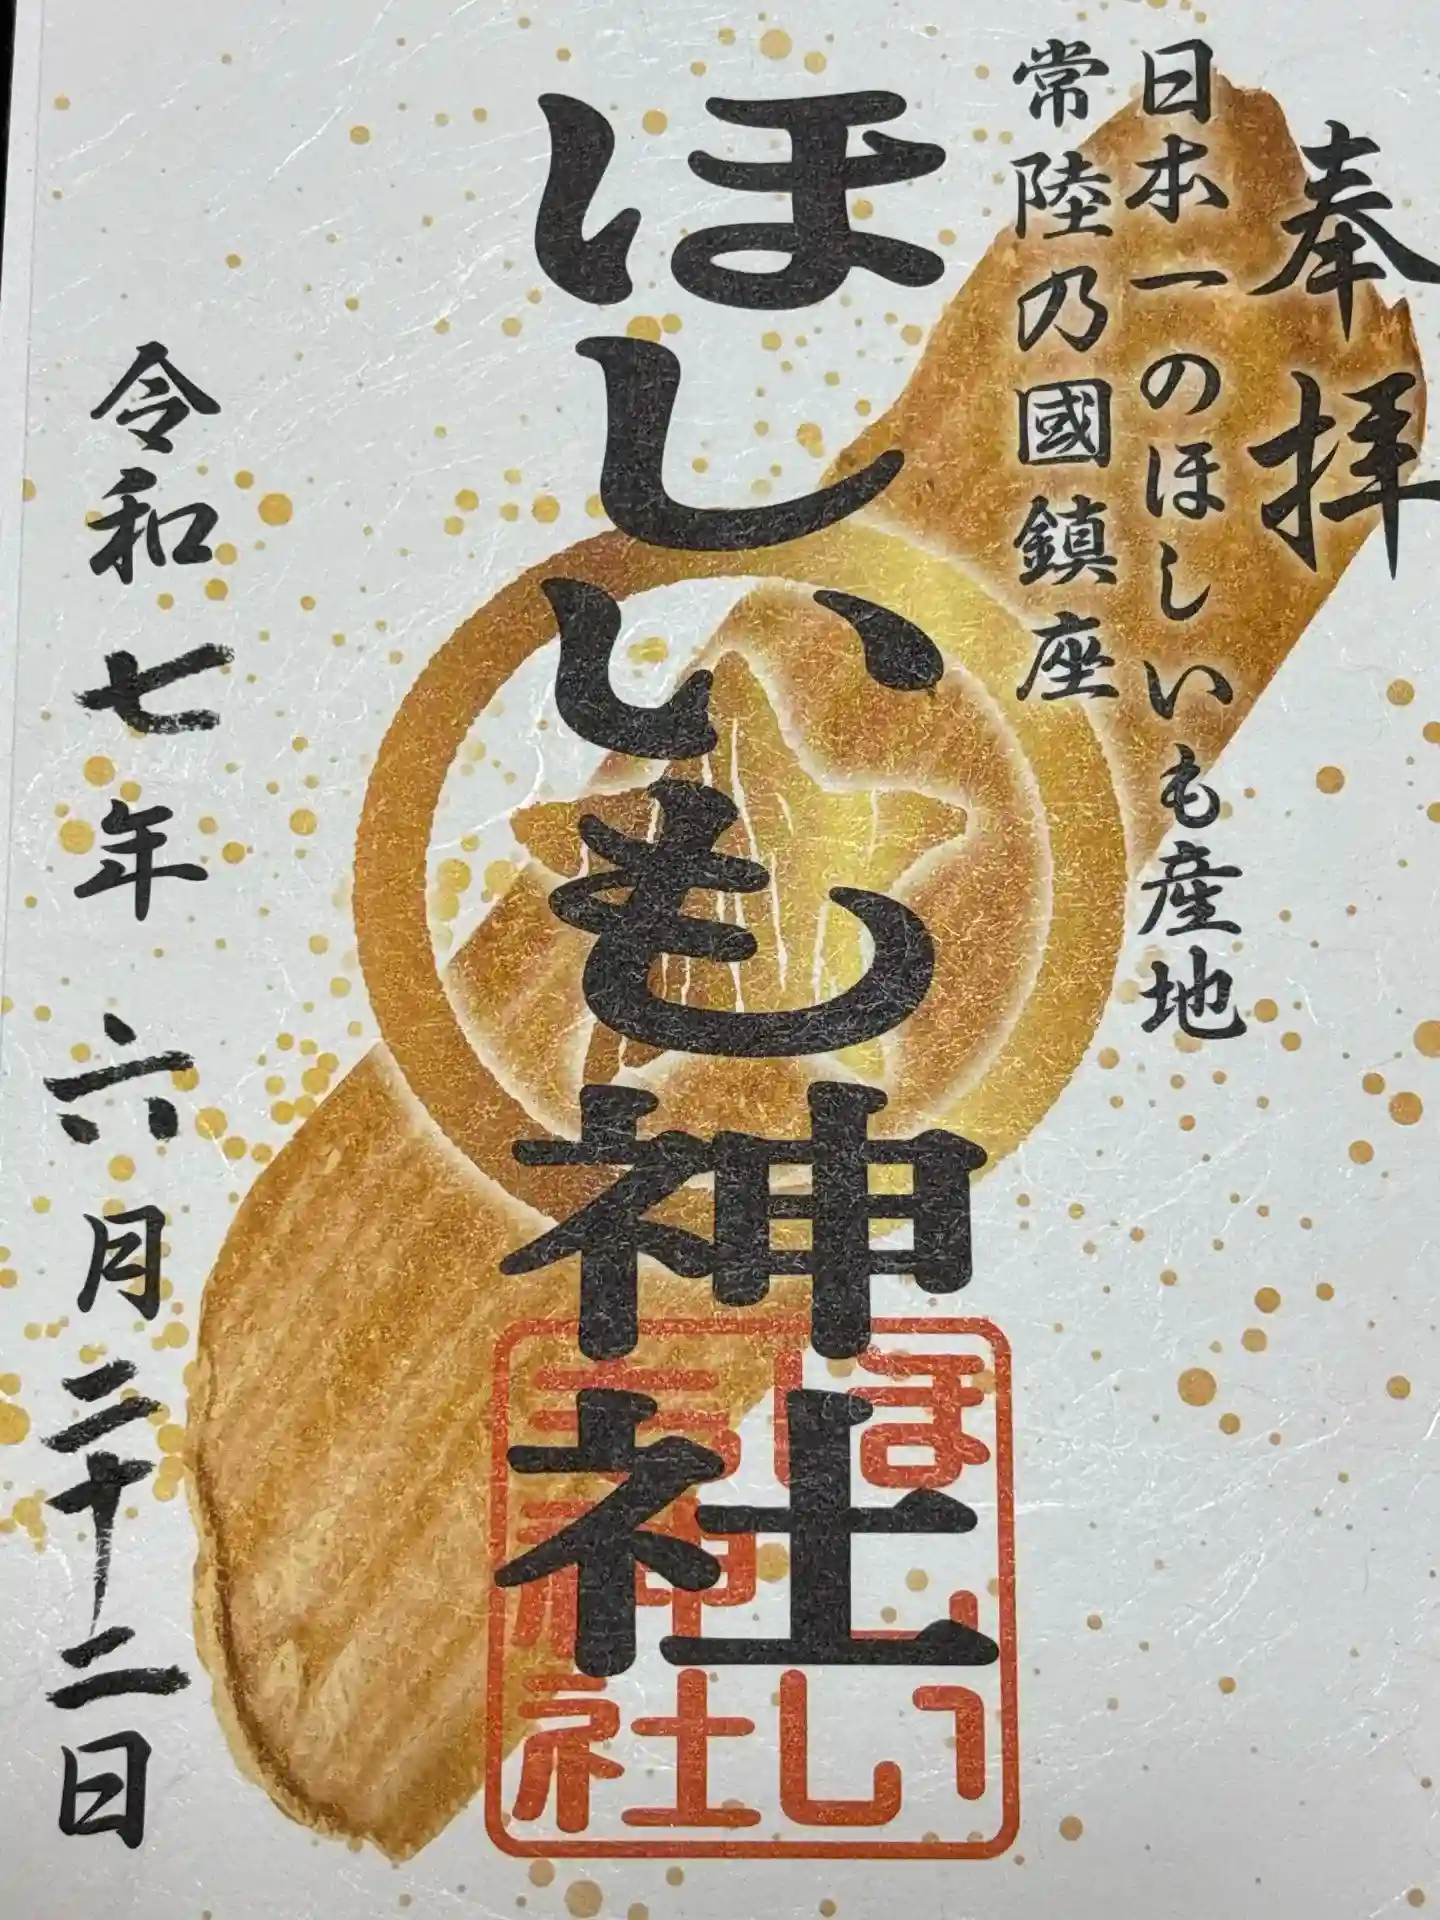 奉拝
日本一のほしいも産地
常陸乃國鎮座
ほしいも神社
令和七年六月二十二日